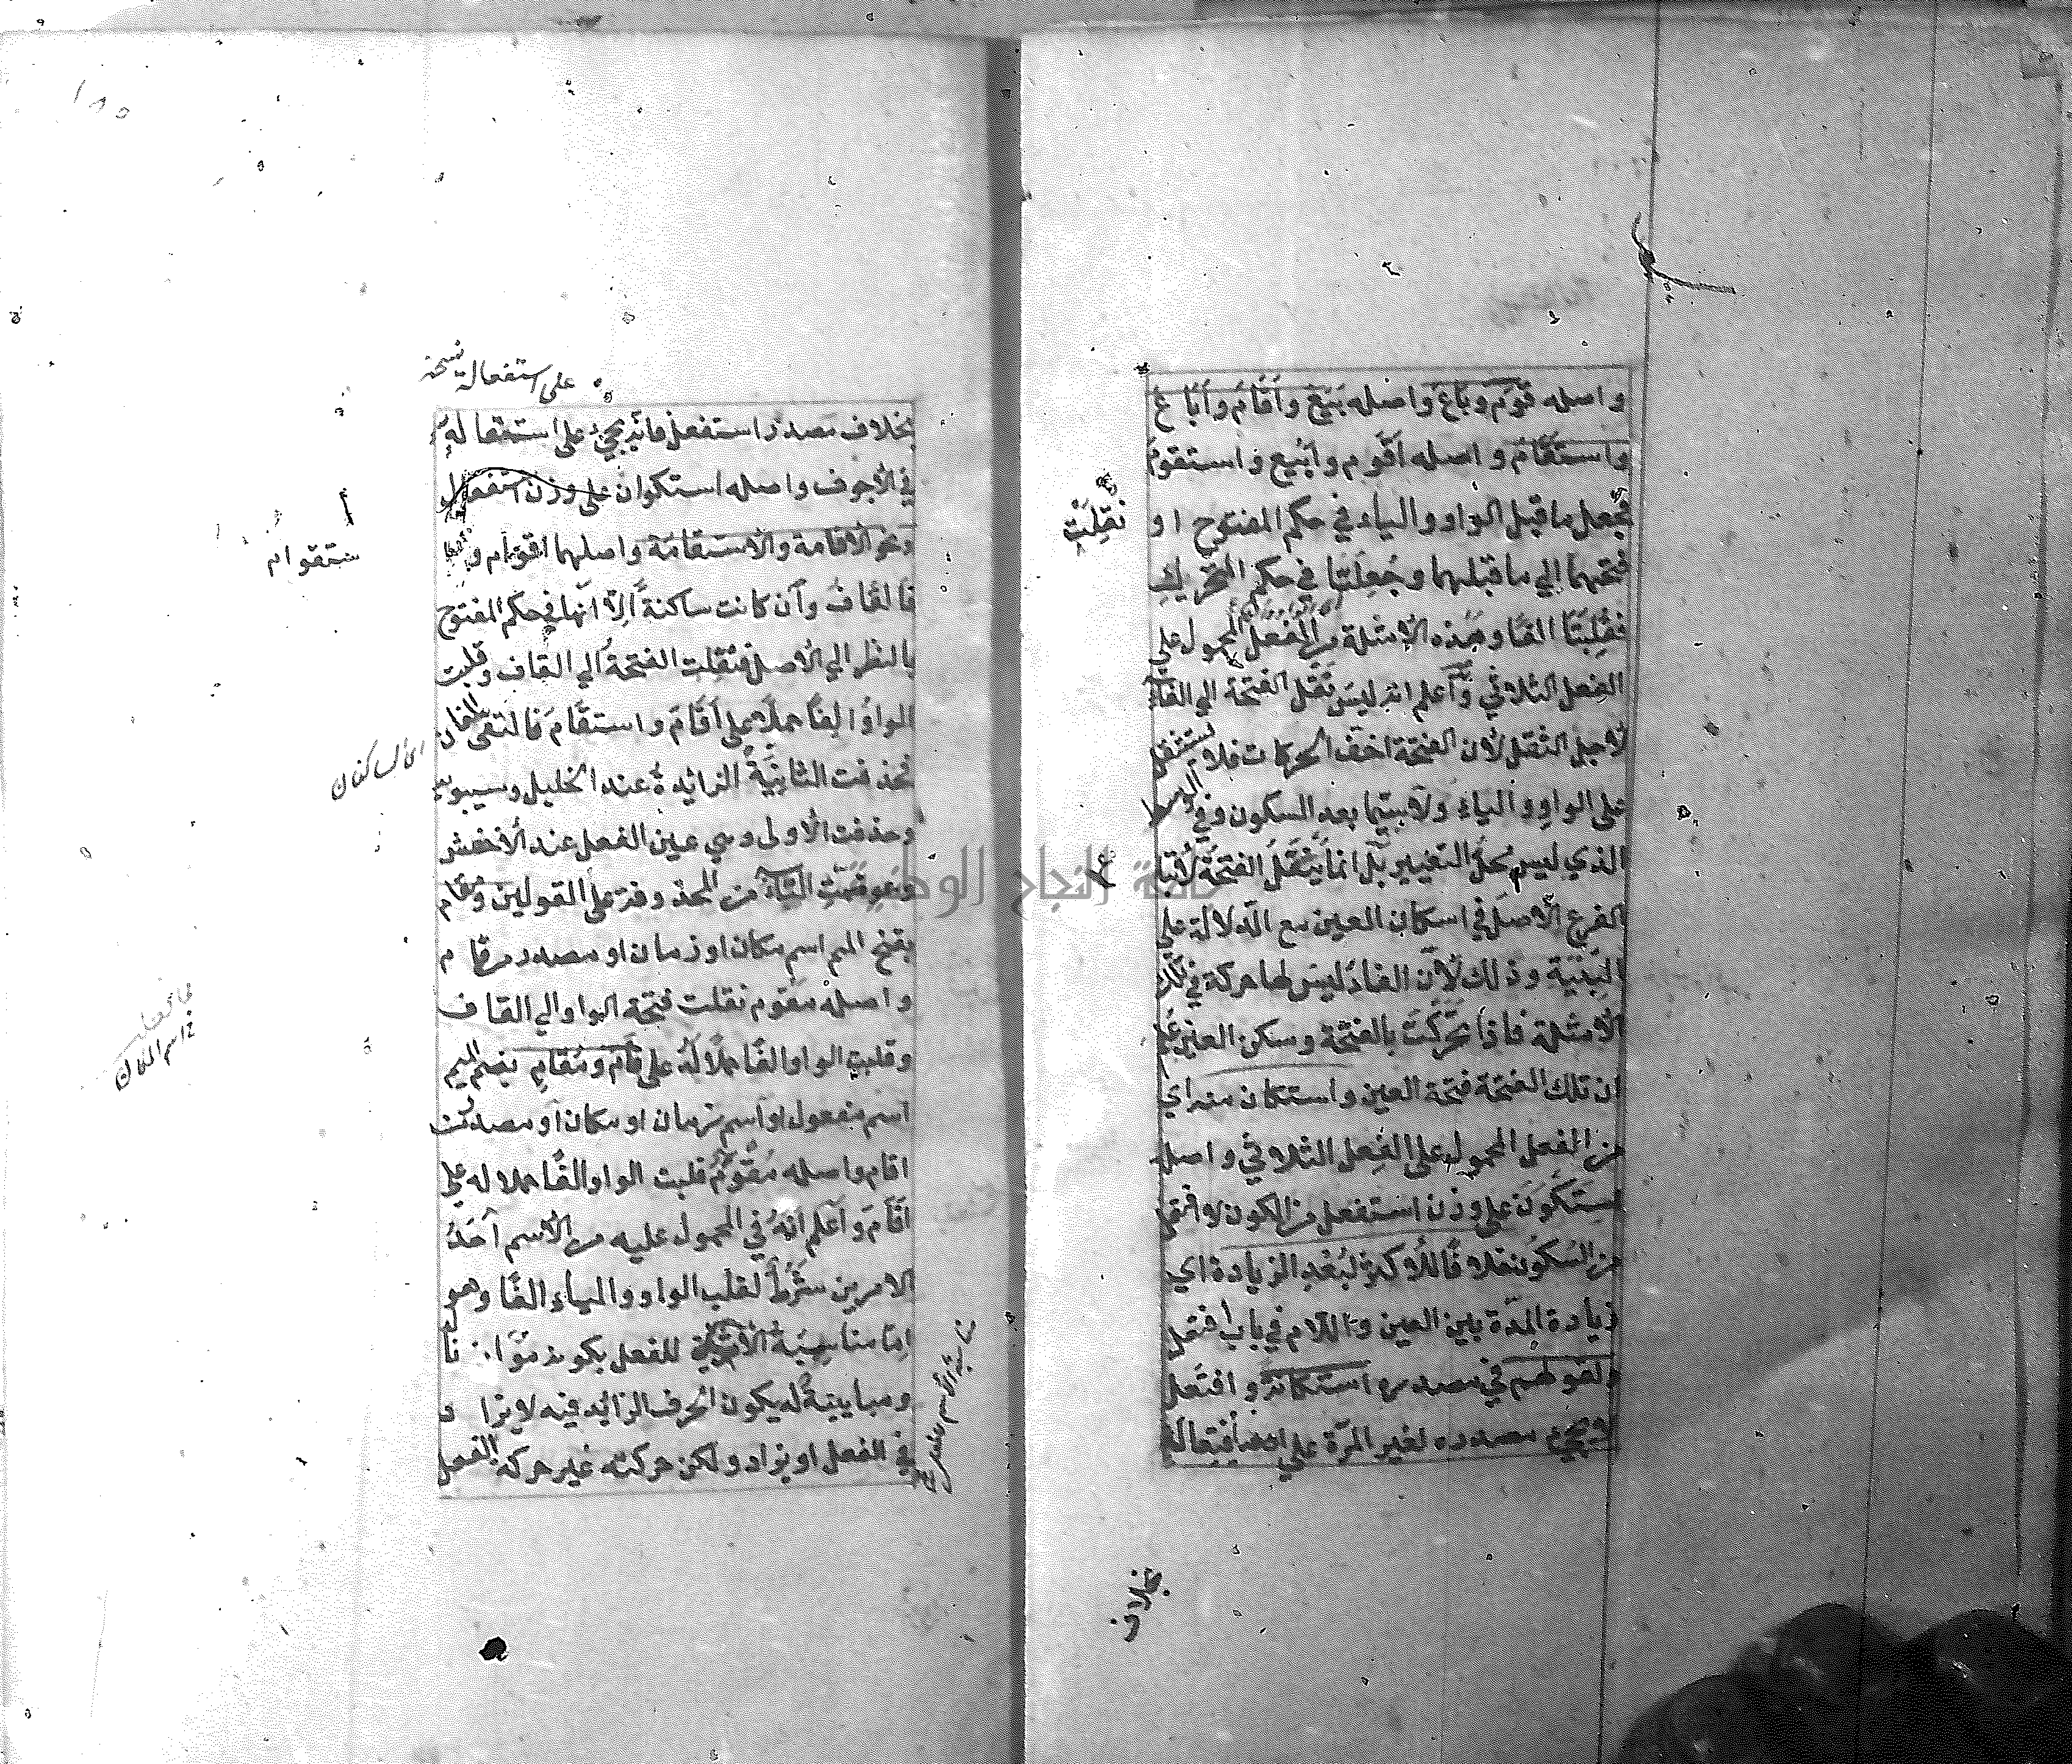 واصله قَوَمَ وبَاعَ واصله بَيَعَ واَقَامَ واَبَاعَ
واستَقَامَ واصله اَقْوَم واَبْيع واستقومَ
فجعل ما قبل الواو والياء في حكم المفتوح او
نقِلَتْ
فتحتهما الي ما قبلهما وجُعِلَتَا في حكم التحريك
فقُلِبَتَا الفًا وهذه الأمثلة من الفعل المحمول على
الفعل الثلاثي وَاعلم انه ليس نَقْل الفتحة الي الفاء
لاجل الثقل لأن الفتحة اخف الحركات فلا تستثقل
على الواو والياء ولا سيّما بعد السكون وفي الوسط
الذي ليس محلّ التغيير بل انما يُنْقَلُ الفتحة
الفرع الأصلَ في اسكان العين مع الدّلالة على
البِنْيَة وذلك لأن الفاء ليس لها حركة في تلك
الامثلة فاذا تحَرَّكَتْ بالفتحة وسكن العين عُلِم
ان تلك الفتحة فتحة العين واستكان منه اي
من الفعل المحمول على الفِعل الثلاثي واصله
اِسْتَكْوَنَ على وزن استفعل من الكون لا افتعل
من السُكون خلافًا للأكثر لبُعْدِ الزيادة اي
زيادة المدّة بين العين واللام في باب افتعل
ولقولهم في مصدره استكانة وافتعل
لا يجيء مصدره لغير المرّة على افتِعالة
بخلاف
على استفعالة نسخة
بخلاف مصدر استفعل فانه يجيء على استفعالةٍ
في الأجوف واصله استكوان على وزن استفعال
ونحو الاقامة والاستقامة واصلهما اقوام و
ا
ستقوام
فالقاف وان كانت ساكنة اِلّا انها في حكم المفتوح
بالنظر الي الأصل فنقِلت الفتحةُ الي القاف وقلبت
الواوُ الِفًا حملًا على اَقَامَ واستقَامَ فالتقى الفان
اي الساكنان
فحذفت الثانِيَةُ الزائِدةُ عند الخليل وسيبويه
وحذفت الأولى وهي عين الفعل عند الأخفش
وعوضَتِ التاء من المحذوفة على القولين ومَقَام
بفتح الميم اسم مكان او زمان او مصدر من قام
واصله مَقْوَم نقلت فتحة الواو الي القاف
وقلبت الواو الفًا حملًا لَهُ على قَامَ ومُقَامٍ بضم الميم
في اسم المكان
اسم مفعول او اسم زمان او مكان او مصدر من
اقام واصله مُقْوَمٌ قلبت الواو الفًا حملا له على
اَقَامَ واَعلم انهُ في المحمول عليه من الاسم اَحَدُ
الامرين شَرْطٌ لقلب الواو والياء الفًا وهو
اِمّا مناسِبَة الاسم للفعل بكونه موازنا له
ومباينةٌ له بكون الحرف الزائد فيه لا يزاد
في الفعل او يزاد ولكن حركته غير حركة الفعل